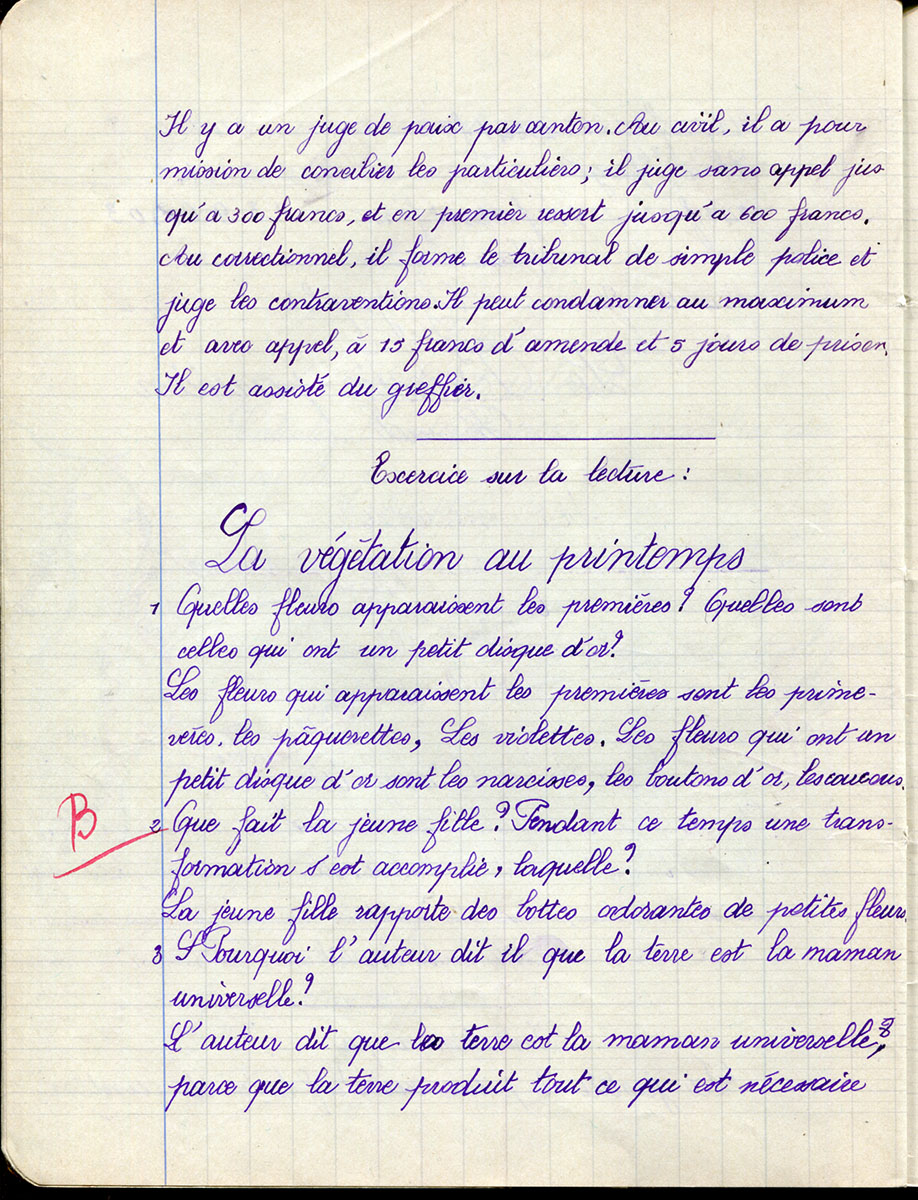 Il y a un juge de paix par canton. Au civil, il a pour
mission de concilier les particuliers; il juge sans appel jus
qu'a 300 francs, et en premier ressort jusqu'a 600 francs.
Au correctionnel, il forme le tribunal de simple police et
juge les contraventions. Il peut condamner au maximum
et avec appel, à 15 francs d'amende et 5 jours de prison.
Il est assisté du greffier.
Excercice sur la lecture :
La végétation au printemps
1 Quelles fleurs apparaissent les premières? Quelles sont
celles qui ont un petit disque d'or?
Les fleurs qui apparaissent les premières sont les prime-
vères, les pâquerettes, Les violettes. Les fleurs qui ont un
petit disque d'or sont les narcisses, les boutons d'or, les coucous.
B
2 Que fait la jeune fille? Pendant ce temps une trans-
formation s'est accomplie, laquelle?
La jeune fille rapporte des bottes odorantes de petites fleurs.
3 Pourquoi l'auteur dit il que la terre est la maman
universelle?
L'auteur dit que la terre est la maman universelle,
parce que la terre produit tout ce qui est nécessaire